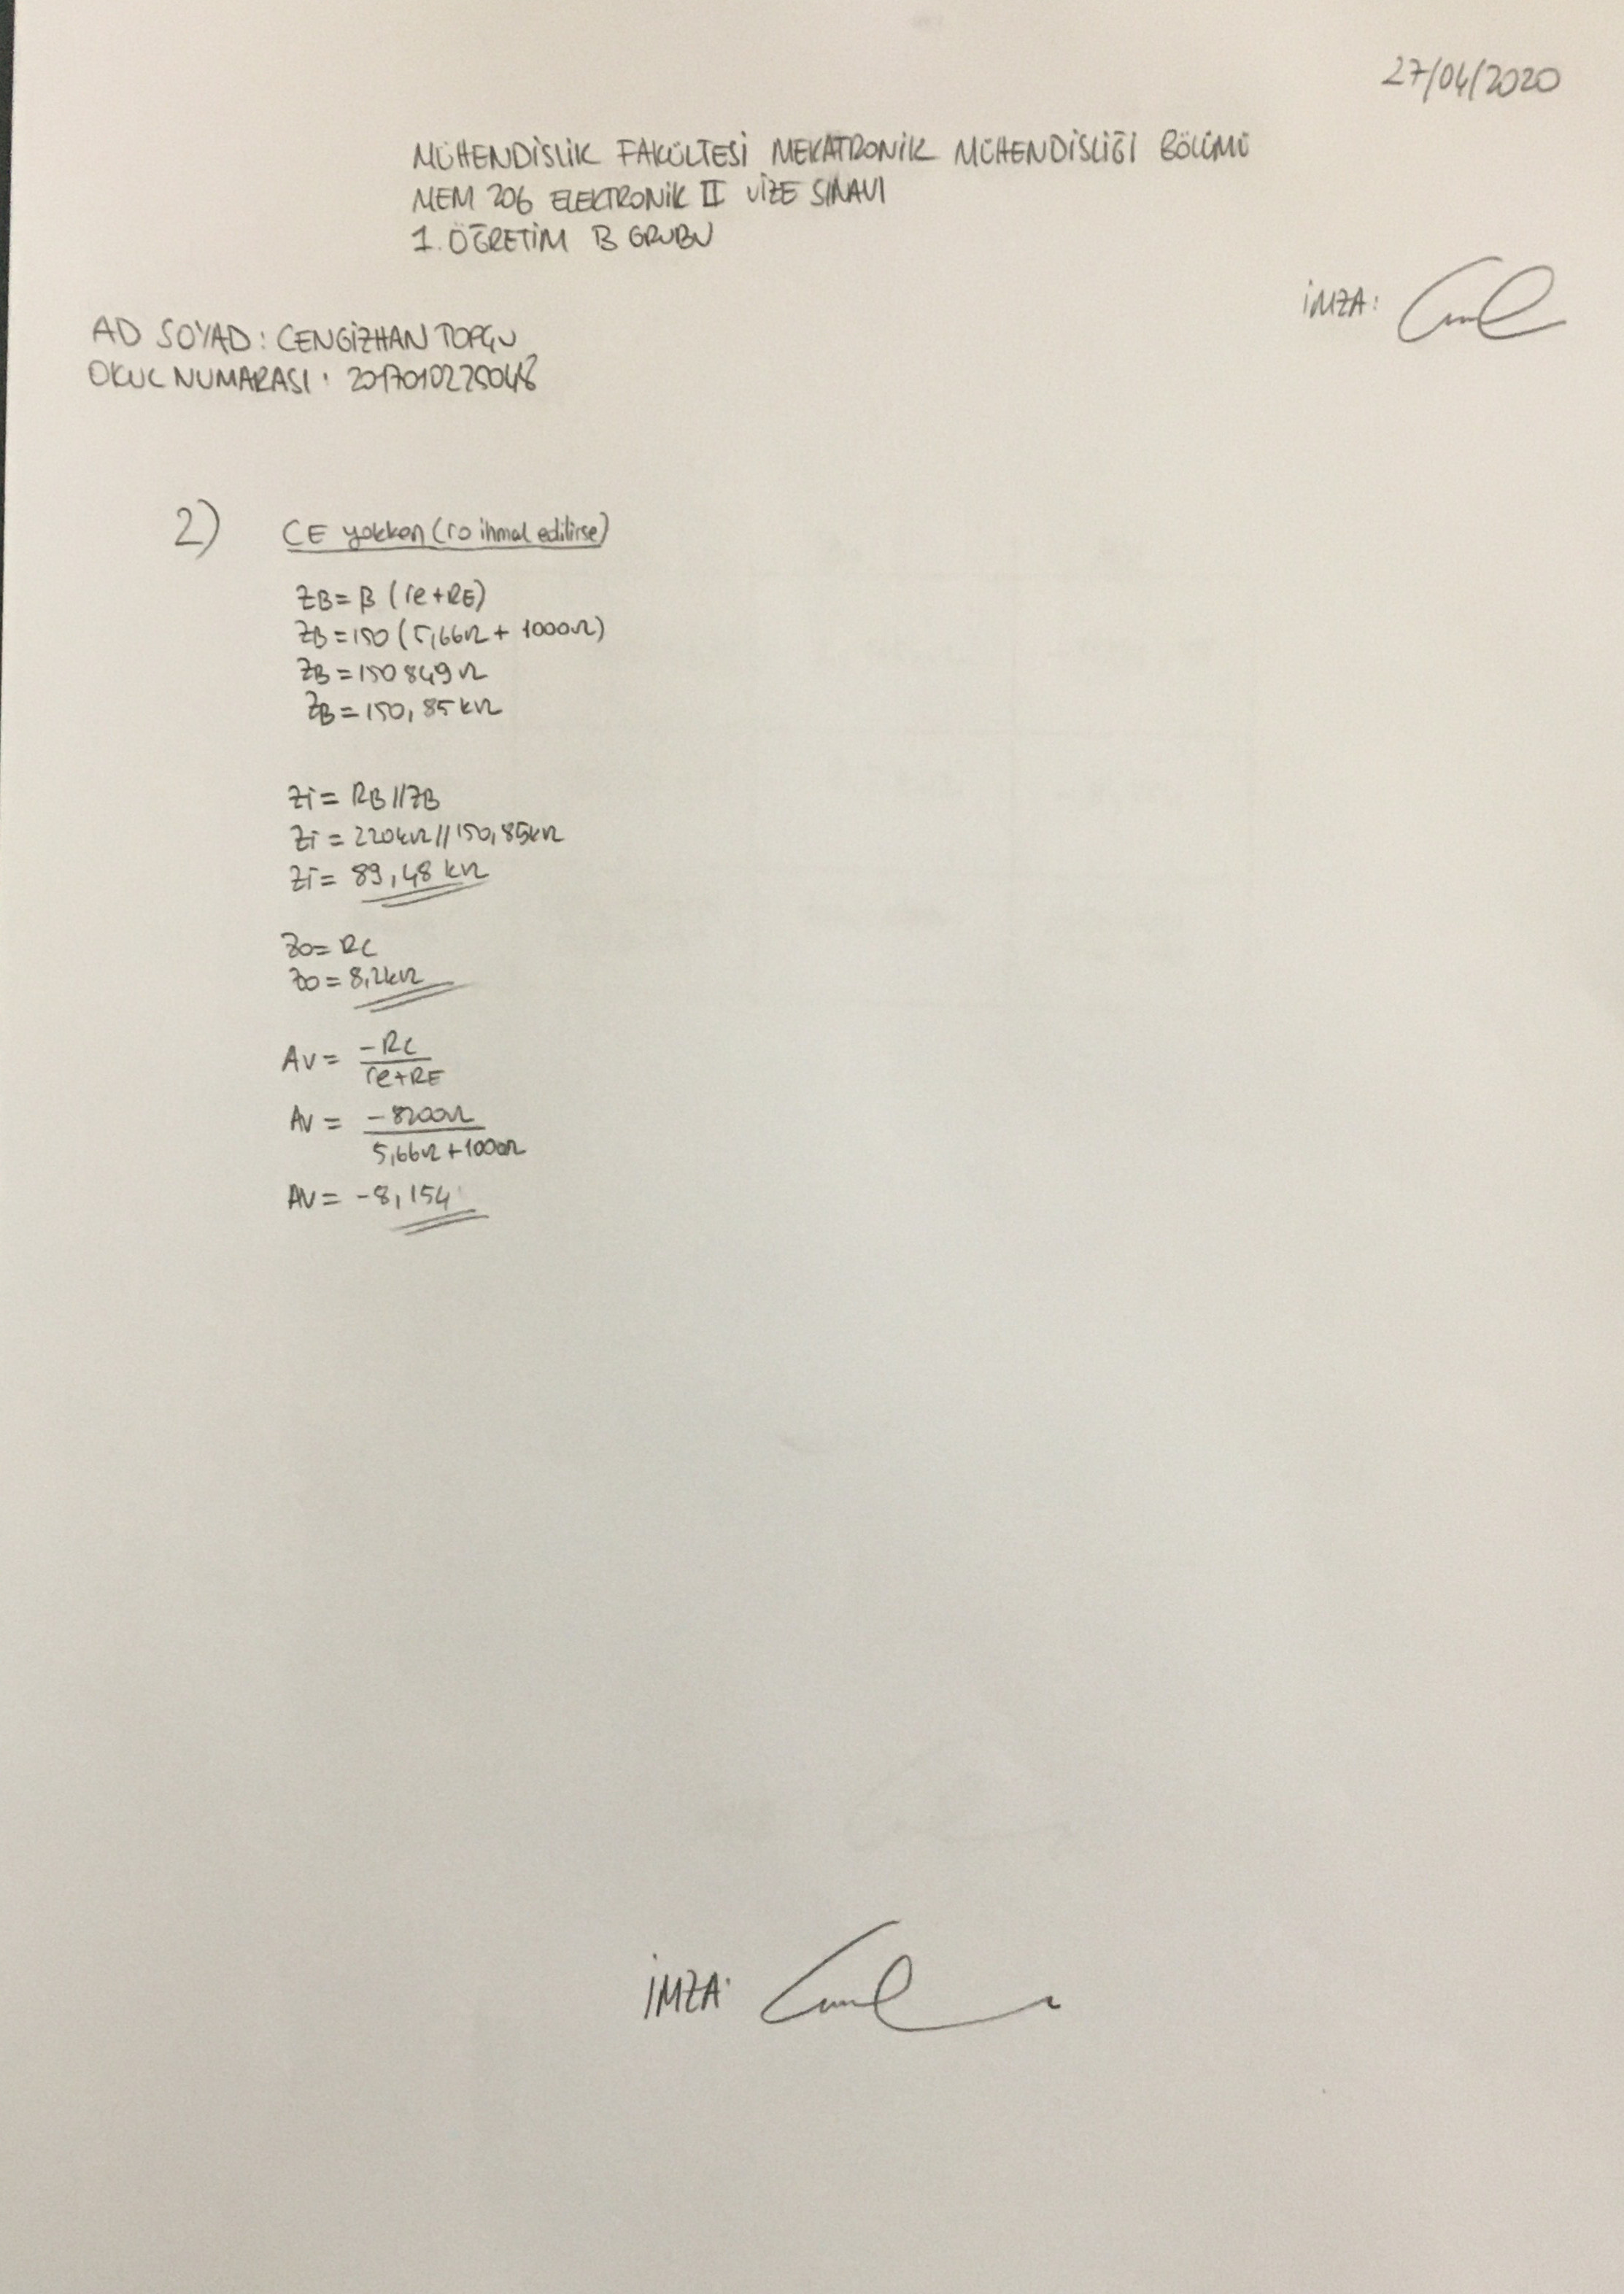 27/04/2020
MÜHENDİSLİK FAKÜLTESİ MEKATRONİK MÜHENDİSLİĞİ BÖLÜMÜ
MEM 206 ELEKTRONİK II VİZE SINAVI
1. ÖĞRETİM B GRUBU
İMZA:
AD SOYAD: CENGİZHAN TOPÇU
OKUL NUMARASI: 2017010225048
2) CE yokken (ro ihmal edilirse)
ZB = β (re+RE)
ZB = 150 (5,66Ω + 1000Ω)
ZB = 150849Ω
ZB = 150,85kΩ
Zi = RB//ZB
Zi = 220kΩ//150,85kΩ
Zi = 89,48 kΩ
Zo = RC
Zo = 8,2kΩ
Av = -RC / re+RE
Av = -8200Ω / 5,66Ω+1000Ω
Av = -8,154
İMZA: